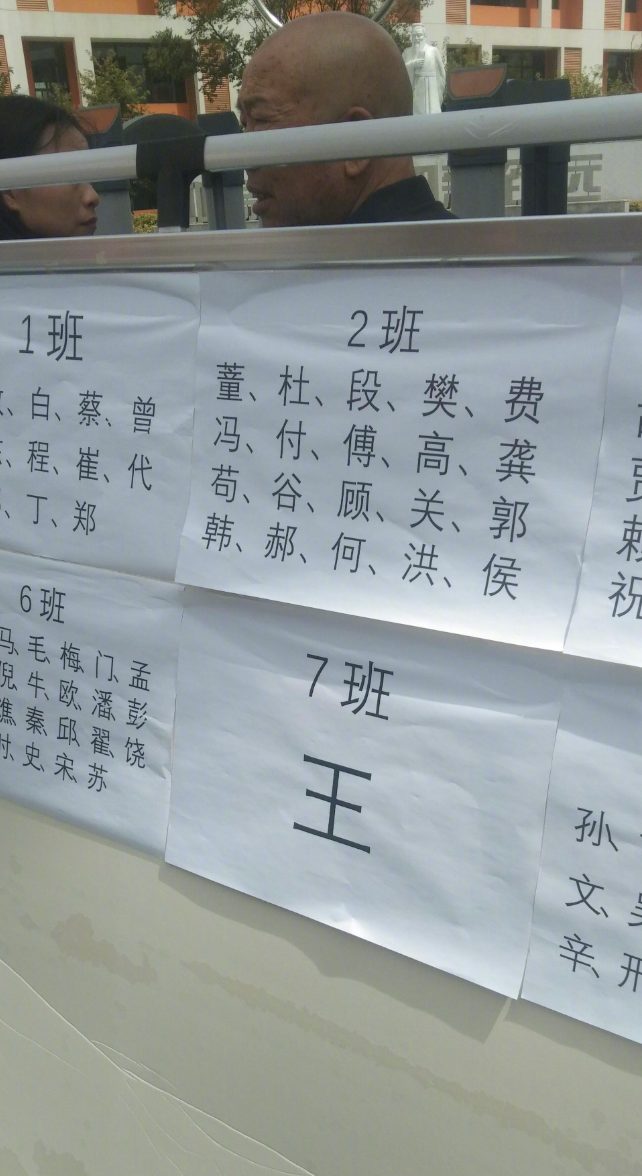 1班
、白、蔡、曾
、程、崔、代
、丁、郑
2班
董、杜、段、樊、费
冯、付、傅、高、龚
苟、谷、顾、关、郭
韩、郝、何、洪、侯
祝
6班
马、毛、梅、门、孟
倪、牛、欧、潘、彭
谯、秦、邱、翟、饶
、史、宋、苏
7班
王
孙、
文、吴
辛、邢
远